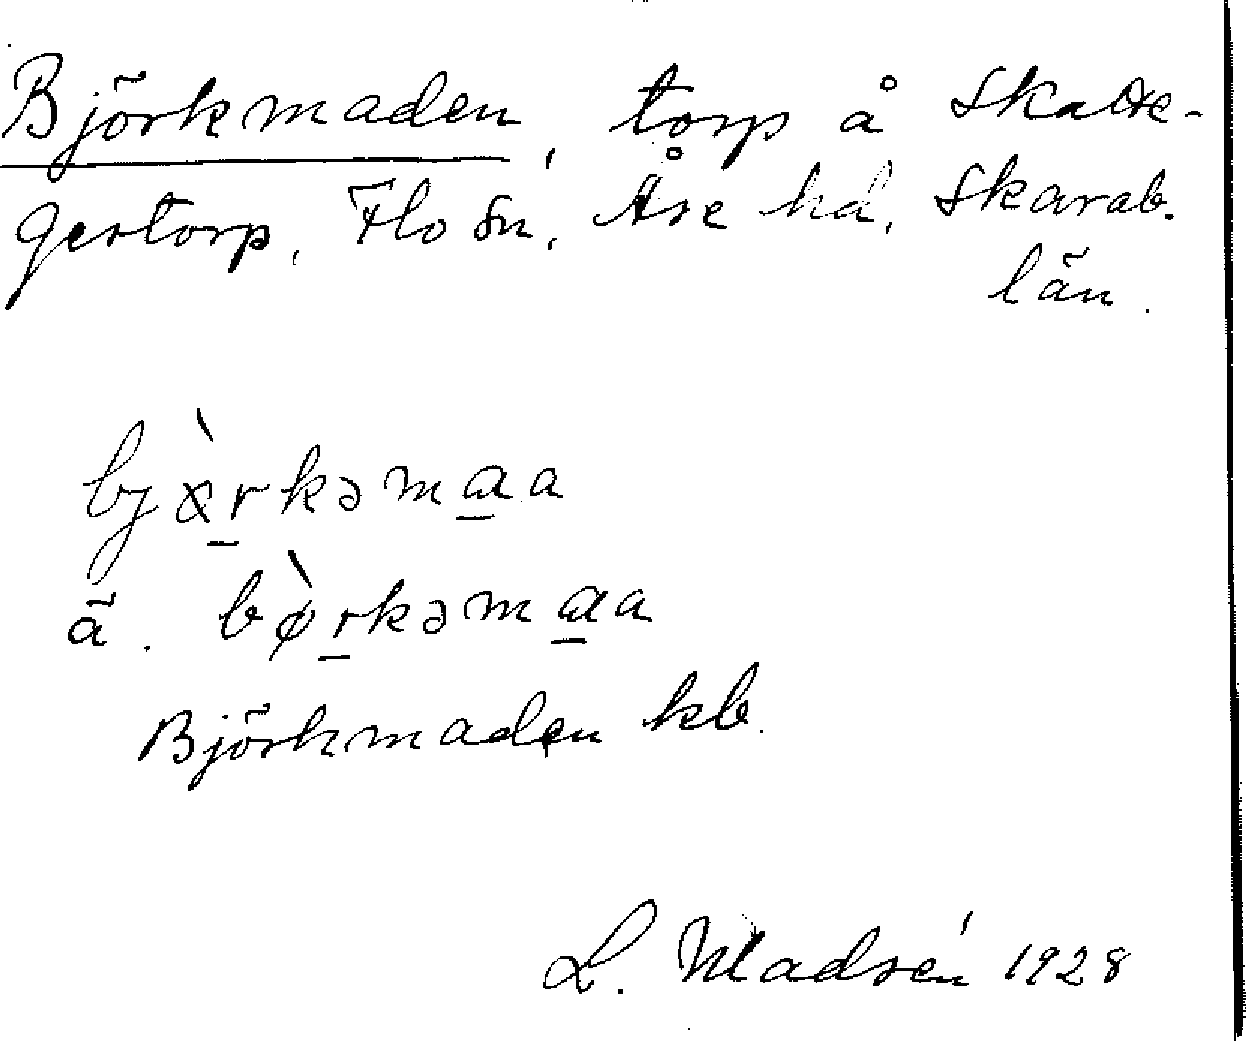 Björkmaden, torp å Skatte-
gestorp, Flo sn, Åse hd, Skarab.
län.
bjɤ̀r̲kəma̲a
ä. bø̀r̲kəma̲a
Björkmaden kb.
L. Madsén 1928